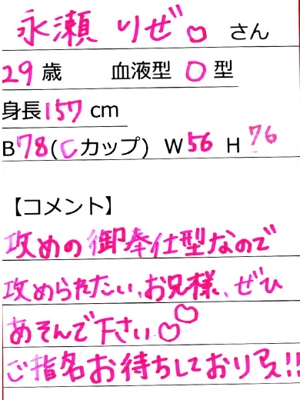 永瀬 りぜ♡ さん
29歳 血液型 O型
身長157cm
B78(Cカップ) W56 H76
【コメント】
攻めの御奉仕型なので
攻められたい、お兄様、ぜひ
あそんで下さい♡♡
ご指名お待ちしております!!